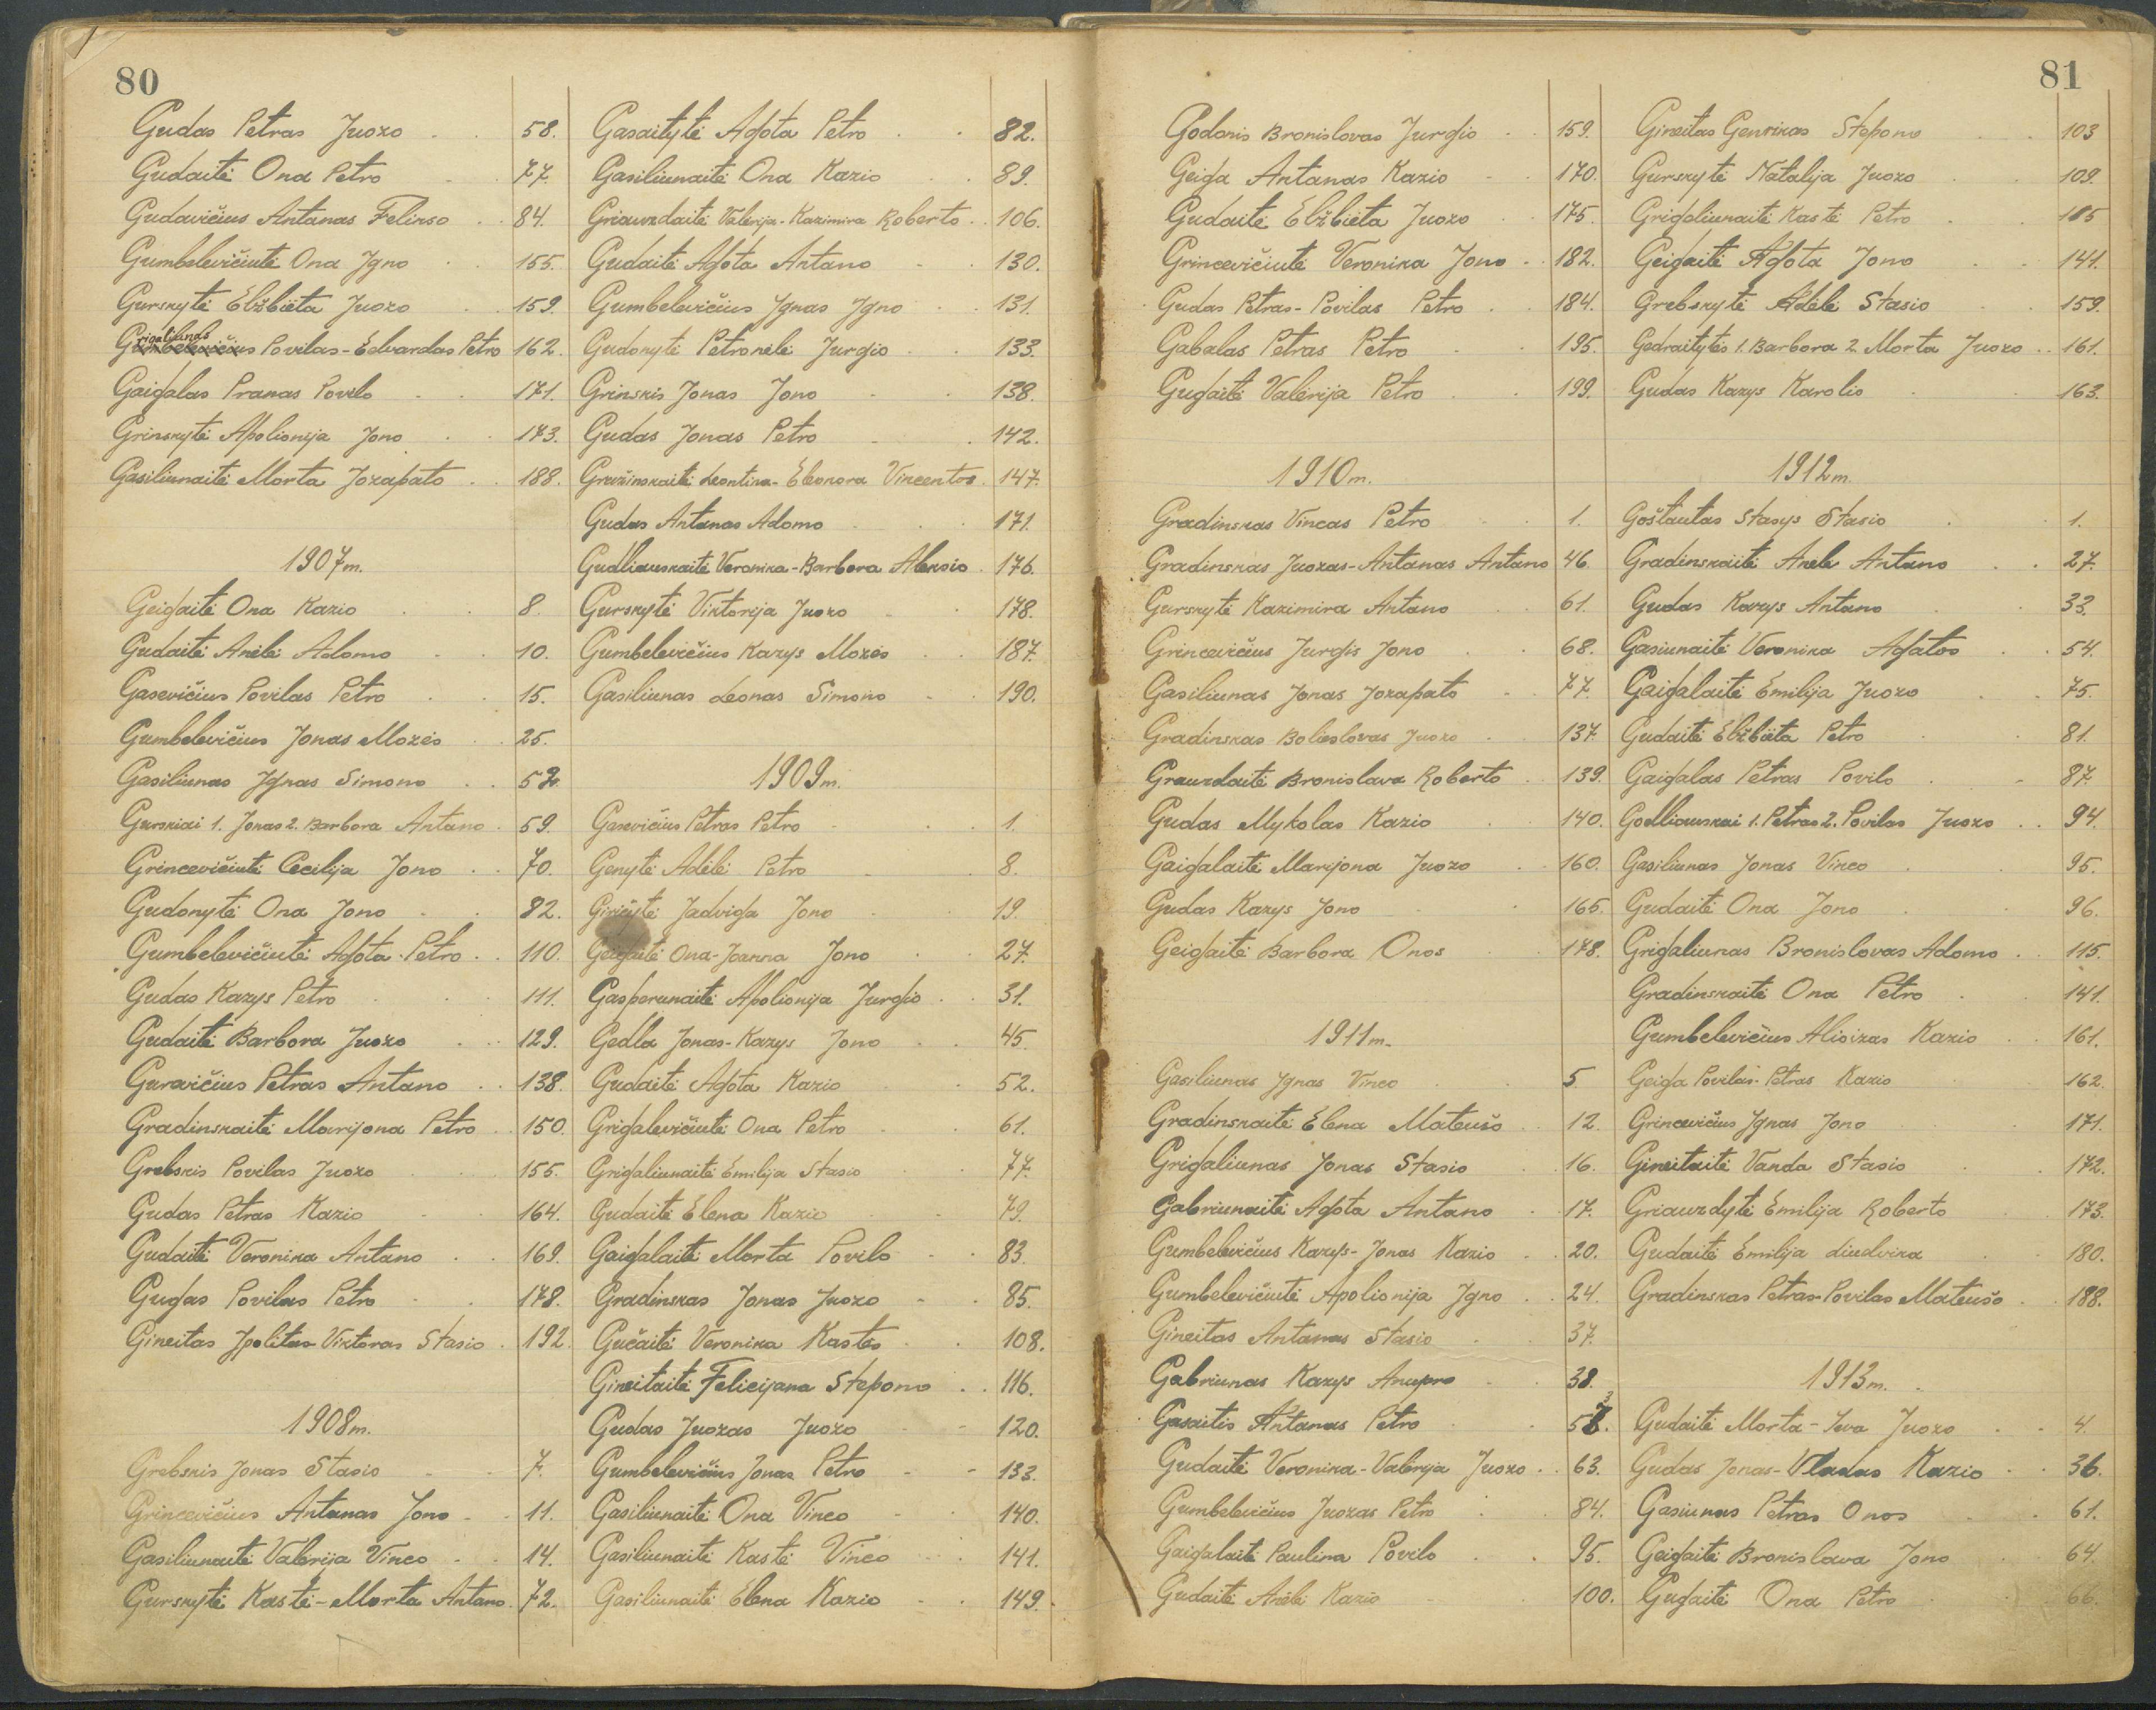 80
Gudas Petras Juozo 58.
Gudaitė Ona Petro 77.
Gudavičius Antanas Felikso 84.
Gumbelevičiutė Ona Igno 155.
Gurskytė Elžbieta Juozo 159.
Grigaliunas Povilas-Edvardas Petro 162.
Gaigalas Pranas Povilo 171.
Grinskytė Apolionija Jono 173.
Gasiliunaitė Morta Jozapato 188.
1907 m.
Geigaitė Ona Kazio 8.
Gudaitė Anelė Adomo 10.
Gasevičius Povilas Petro 15.
Gumbelevičius Jonas Mozės 25.
Gasiliunas Ignas Simono 52.
Gurskiai 1. Jonas 2. Barbora Antano 59.
Grincevičiutė Cecilija Jono 70.
Gudonytė Ona Jono 82.
Gumbelevičiutė Agota Petro 110.
Gudas Kazys Petro 111.
Gudaitė Barbora Juozo 129.
Guravičius Petras Antano 138.
Gradinskaitė Marijona Petro 150.
Grebskis Povilas Juozo 155.
Gudas Petras Kazio 164.
Gudaitė Veronika Antano 169.
Gugas Povilas Petro 178.
Gineitas Ipolitas-Viktoras Stasio 192.
1908 m.
Grebskis Jonas Stasio 7.
Grincevičius Antanas Jono 11.
Gasiliunaitė Valerija Vinco 14.
Gurskytė Kastė-Morta Antano 72.
Gasaitytė Agota Petro 82.
Gasiliunaitė Ona Kazio 89.
Griauzdaitė Valerija-Kazimira Roberto 106.
Gudaitė Agota Antano 130.
Gumbelevičius Ignas Igno 131.
Gudonytė Petronėlė Jurgio 133.
Grinskis Jonas Jono 138.
Gudas Jonas Petro 142.
Gružinskaitė Leontina-Eleonora Vincentos 147.
Gudas Antanas Adomo 171.
Gudliauskaitė Veronika-Barbora Aleksio 176.
Gurskytė Viktorija Juozo 178.
Gumbelevičius Kazys Mozės 187.
Gasiliunas Leonas Simono 190.
1909 m.
Gasevičius Petras Petro 1.
Genytė Adėlė Petro 8.
Giričytė Jadviga Jono 19.
Geigaitė Ona-Joanna Jono 27.
Gasperunaitė Apolionija Jurgio 31.
Gedla Jonas-Kazys Jono 45.
Gudaitė Agota Kazio 52.
Grigalevičiutė Ona Petro 61.
Grigaliunaitė Emilija Stasio 77.
Gudaitė Elena Kazio 79.
Gaigalaitė Morta Povilo 83.
Gradinskas Jonas Juozo 85.
Gučaitė Veronika Kastės 108.
Gineitaitė Felicijana Stepono 116.
Gudas Juozas Juozo 120.
Gumbelevičius Jonas Petro 133.
Gasiliunaitė Ona Vinco 140.
Gasiliunaitė Kastė Vinco 141.
Gasiliunaitė Elena Kazio 149.
81
Godonis Bronislovas Jurgio 159.
Geiga Antanas Kazio 170.
Gudaitė Elžbieta Juozo 175.
Grincevičiutė Veronika Jono 182.
Gudas Petras-Povilas Petro 184.
Gabalas Petras Petro 195.
Gugaitė Valerija Petro 199.
1910 m.
Gradinskas Vincas Petro 1.
Gradinskas Juozas-Antanas Antano 46.
Gurskytė Kazimira Antano 61.
Grincevičius Jurgis Jono 68.
Gasiliunas Jonas Jozapato 77.
Gradinskas Bolieslovas Juozo 137.
Grauzdaitė Bronislava Roberto 139.
Gudas Mykolas Kazio 140.
Gaigalaitė Marijona Juozo 160.
Gudas Kazys Jono 165.
Geigaitė Barbora Onos 178.
1911 m.
Gasiliunas Ignas Vinco 5
Gradinskaitė Elena Mateušo 12.
Grigaliunas Jonas Stasio 16.
Gabriunaitė Agota Antano 17.
Gumbelevičius Kazys-Jonas Kazio 20.
Gumbelevičiutė Apolionija Igno 24.
Gineitas Antanas Stasio 37.
Gabriunas Kazys Anupro 38.
Gasaitis Antanas Petro
Gudaitė Veronika-Valerija Juozo 63.
Gumbelevičius Juozas Petro 84.
Gaigalaitė Paulina Povilo 95.
Gudaitė Anelė Kazio 100.
Gineitas Genrikas Stepono 103
Gurskytė Natalija Juozo 109.
Grigaliunaitė Kastė Petro
Geigaitė Agota Jono 141.
Grebskytė Adėlė Stasio 159.
Gedraitytės 1. Barbora 2. Morta Juozo 161.
Gudas Kazys Karolio 163.
1912 m.
Goštautas Stasys Stasio 1.
Gradinskaitė Anelė Antano 27.
Gudas Kazys Antano 33.
Gasiunaitė Veronika Agatos 54.
Gaigalaitė Emilija Juozo 75.
Gudaitė Elžbieta Petro 81.
Gaigalas Petras Povilo 87.
Godliauskai 1. Petras 2. Povilas Juozo 94.
Gasiliunas Jonas Vinco 95.
Gudaitė Ona Jono 96.
Grigaliunas Bronislovas Adomo 115.
Gradinskaitė Ona Petro 141.
Gumbelevičius Alioizas Kazio 161.
Geiga Povilas-Petras Kazio 162.
Grincevičius Ignas Jono 171.
Gineitaitė Vanda Stasio 172.
Griauzdytė Emilija Roberto 173.
Gudaitė Emilija Liudvika 180.
Gradinskas Petras-Povilas Mateušo 188.
1913 m.
Gudaitė Morta-Ieva Juozo 4.
Gudas Jonas-Vladas Kazio 36.
Gasiunas Petras Onos 61.
Geigaitė Bronislava Jono 64.
Gugaitė Ona Petro 66.